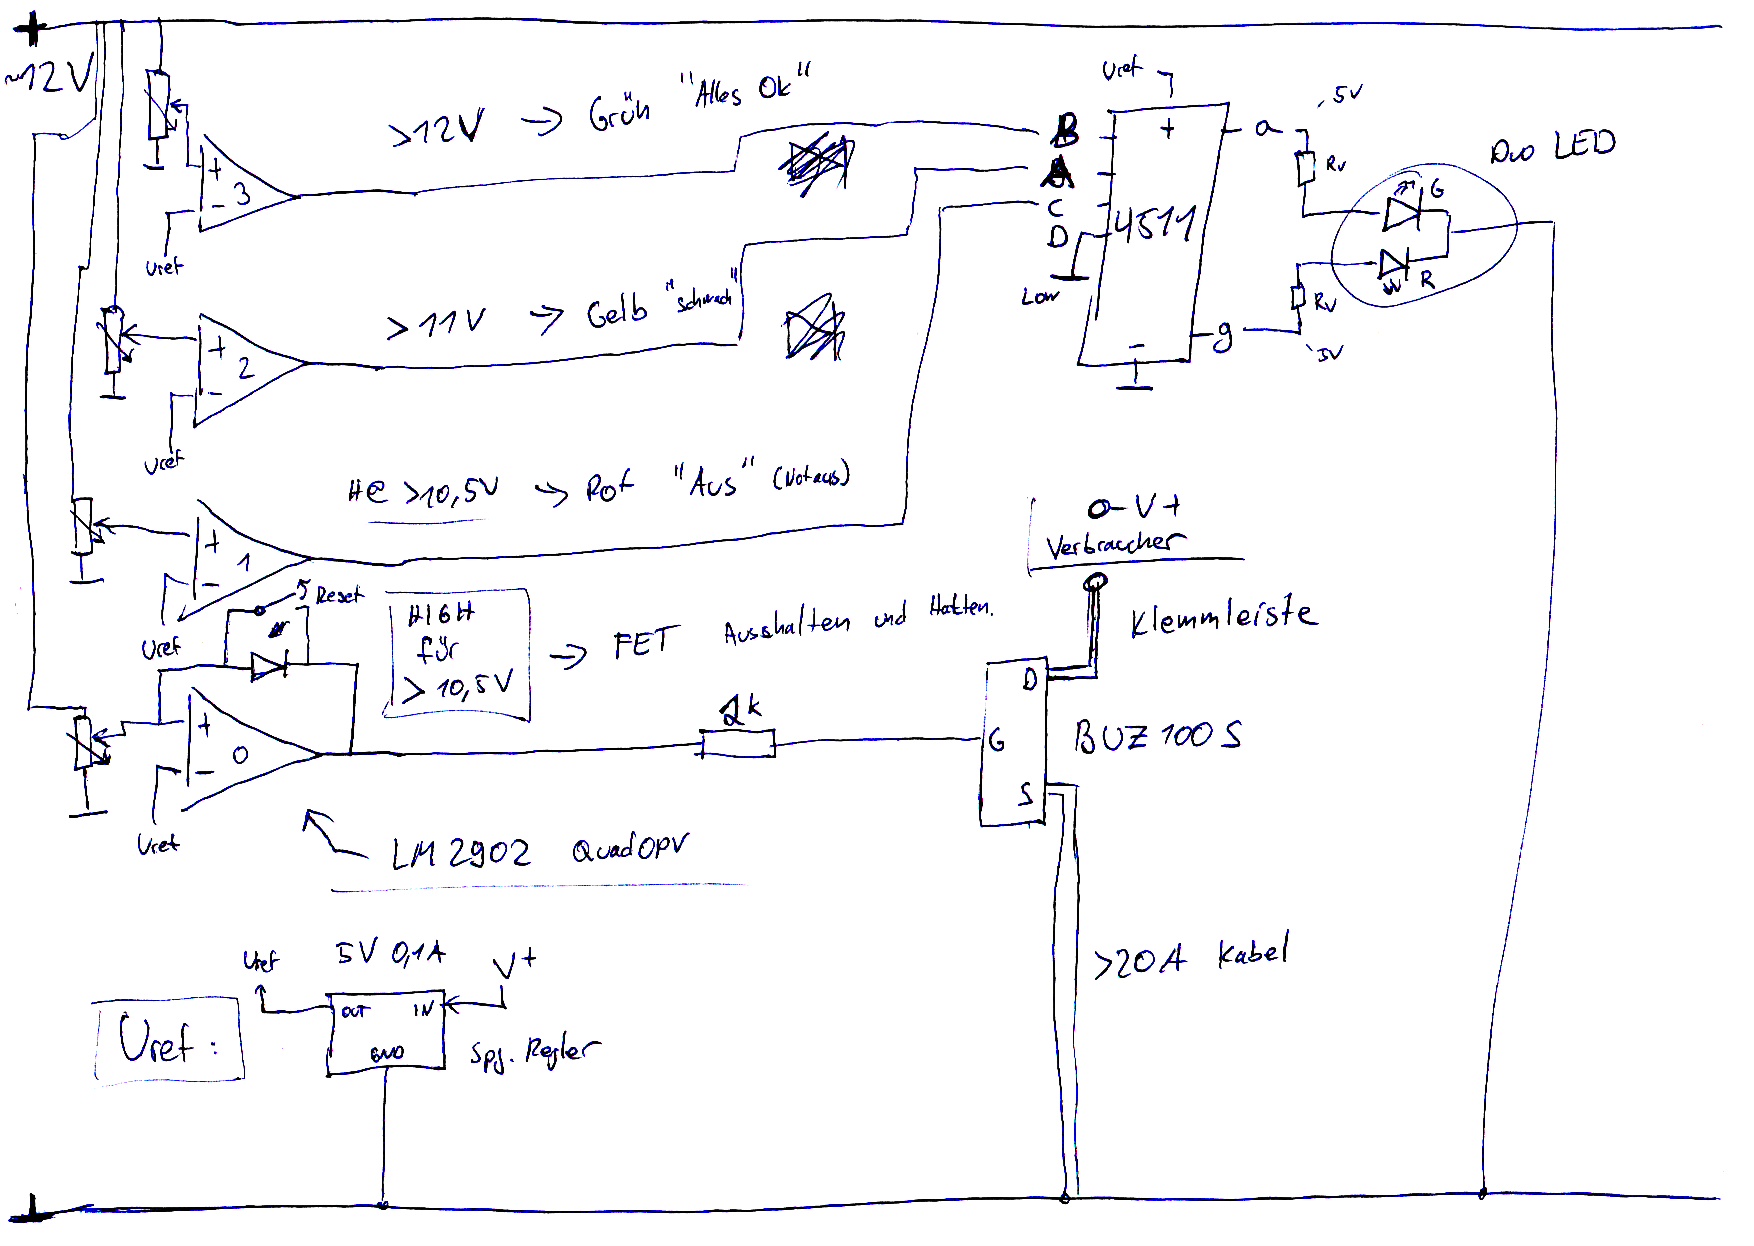 +
~12V
>12V → Grün "Alles Ok"
+
3
-
Uref
>11V → Gelb "schwach"
+
2
-
Uref
>10,5V → Rot "Aus" (Notaus)
+
1
-
Uref
Reset
HIGH
für
>10,5V
→ FET Ausschalten und Halten.
+
0
-
Uref
LM2902 QuadOPV
2k
G
D
S
BUZ100S
O-V+
Verbraucher
Klemmleiste
>20A Kabel
Uref
+
B
A
C
D
Low
4511
-
a
g
5V
Rv
Rv
5V
G
R
Duo LED
Uref:
Uref
5V 0,1A
V+
OUT
IN
GND
Spg. Regler